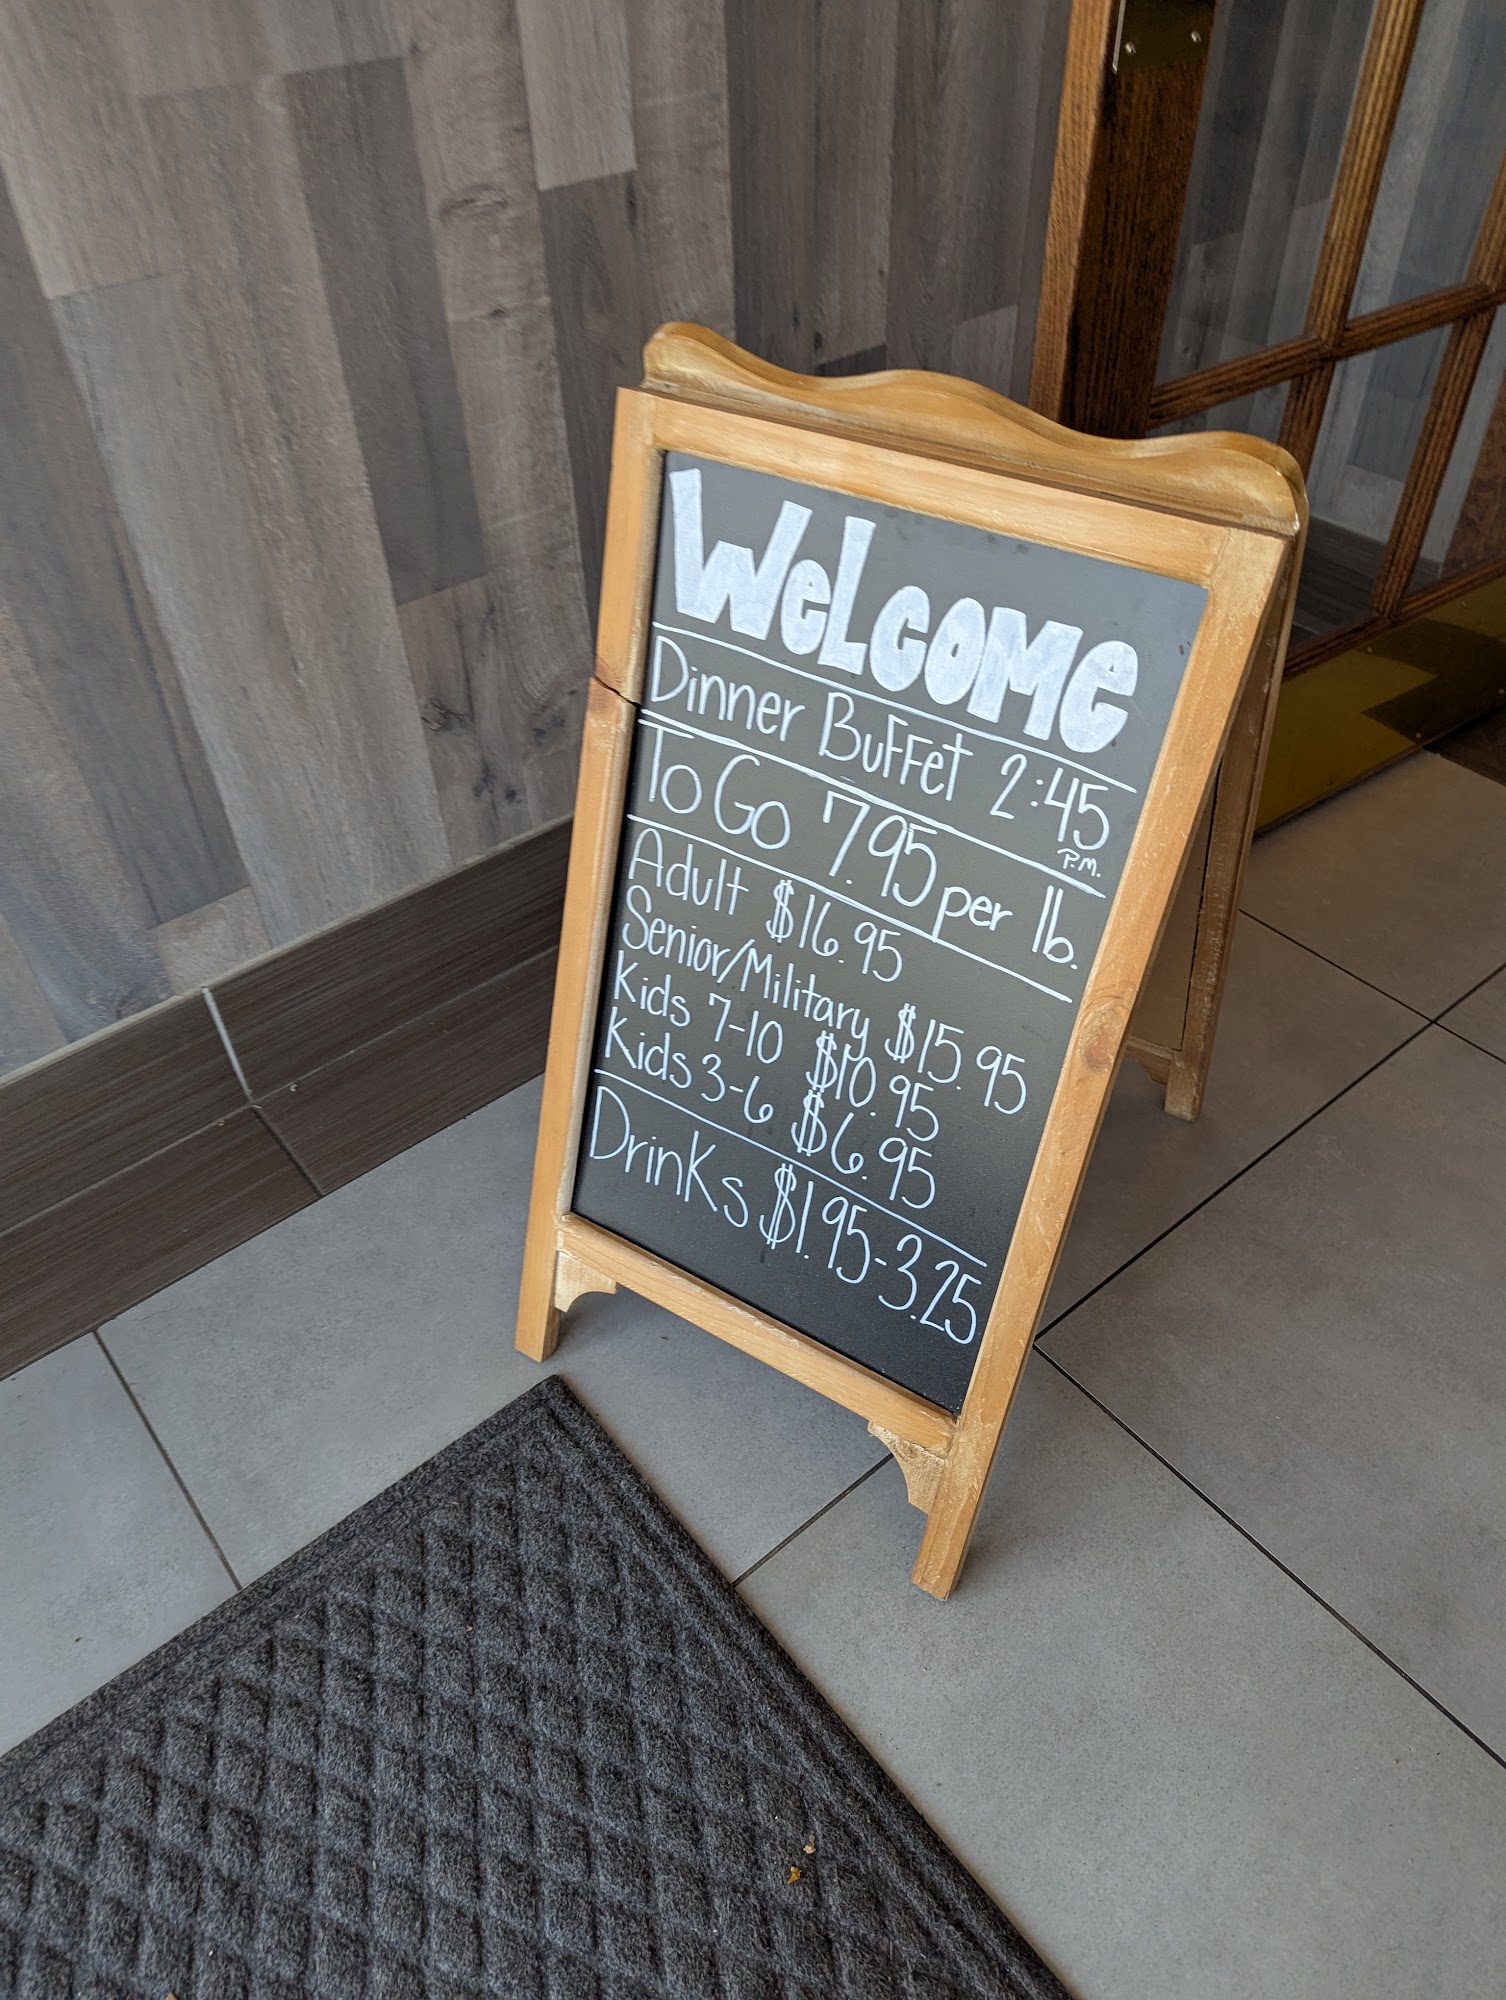 WeLCOMe
Dinner BuFFet 2:45 P.M.
To Go 7.95 per lb.
Adult $16.95
Senior/Military $15.95
Kids 7-10 $10.95
Kids 3-6 $6.95
Drinks $1.95-3.25